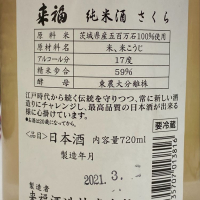 来福 純米酒 さくら
原料米 茨城県産五百万石100%使用
原材料名 米、米こうじ
アルコール分 17度
精米歩合 59%
酵母 東農大分離株
江戸時代から続く伝統を守りつつ、常に新しい酒
造りにチャレンジし、最高品質の日本酒が出来る
様に心掛けています。
<品目>日本酒 内容量720ml
要冷蔵
製造年月
2021.3.
製造者